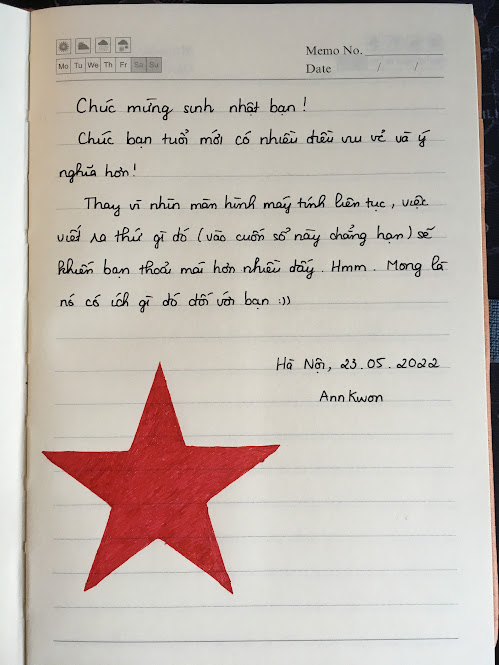 Memo No.
Mo Tu We Th Fr Sa Su
Date / /
Chúc mừng sinh nhật bạn !
Chúc bạn tuổi mới có nhiều điều vui vẻ và ý
nghĩa hơn !
Thay vì nhìn màn hình máy tính liên tục , việc
viết ra thứ gì đó ( vào cuốn sổ này chẳng hạn ) sẽ
khiến bạn thoải mái hơn nhiều đấy . Hmm . Mong là
nó có ích gì đó đối với bạn :))
Hà Nội, 23.05.2022
Ann Kwon